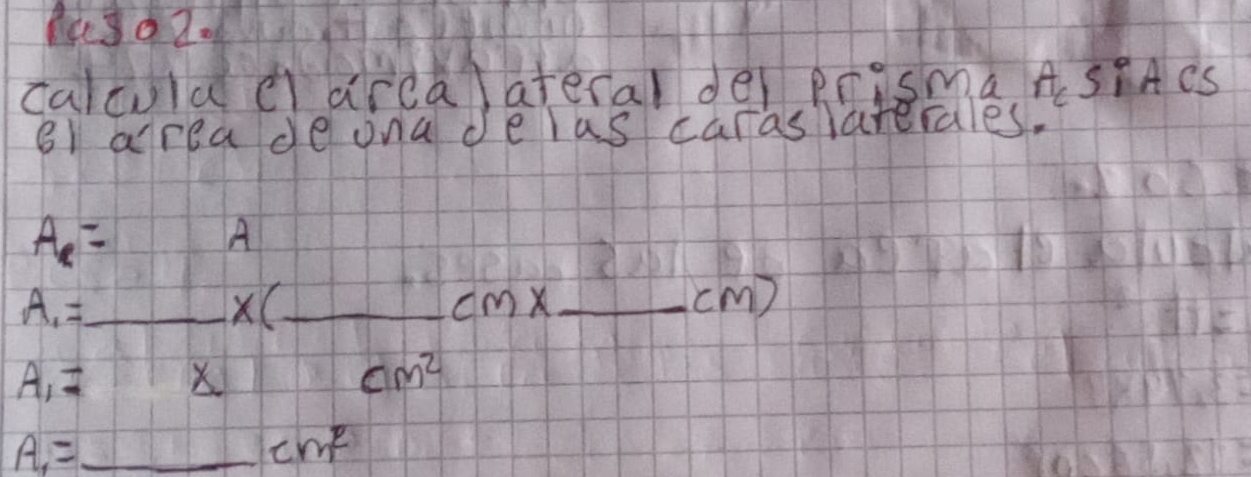 Paso 2.
calcula el área lateral del prisma Ac si A es
el área de una de las caras laterales.
Aℓ = A
A₁ = ____ x ( ____ cm x ____ cm)
A₁ = x cm²
A₁ = ____ cm²